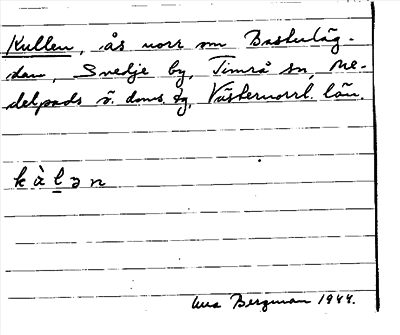 Kullen, ås norr om Bastuläg-
dan, Smedje by, Timrå sn, Me-
delpads ö. doms. sg, Västernorrl. län.
k à l ə n
Bergman 1944.